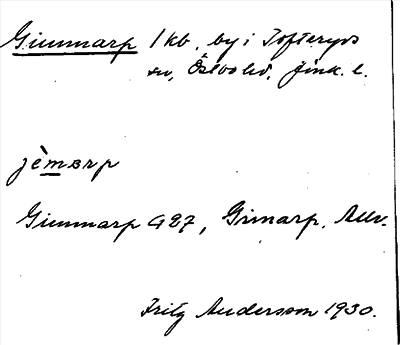 Gimmarp 1 kb. by i Tofteryds
sn, Östbo hd. Jönk. l.
jèmarp
Gimmarp G 27, Grimarp. Allv.
Fritz Andersson 1930.